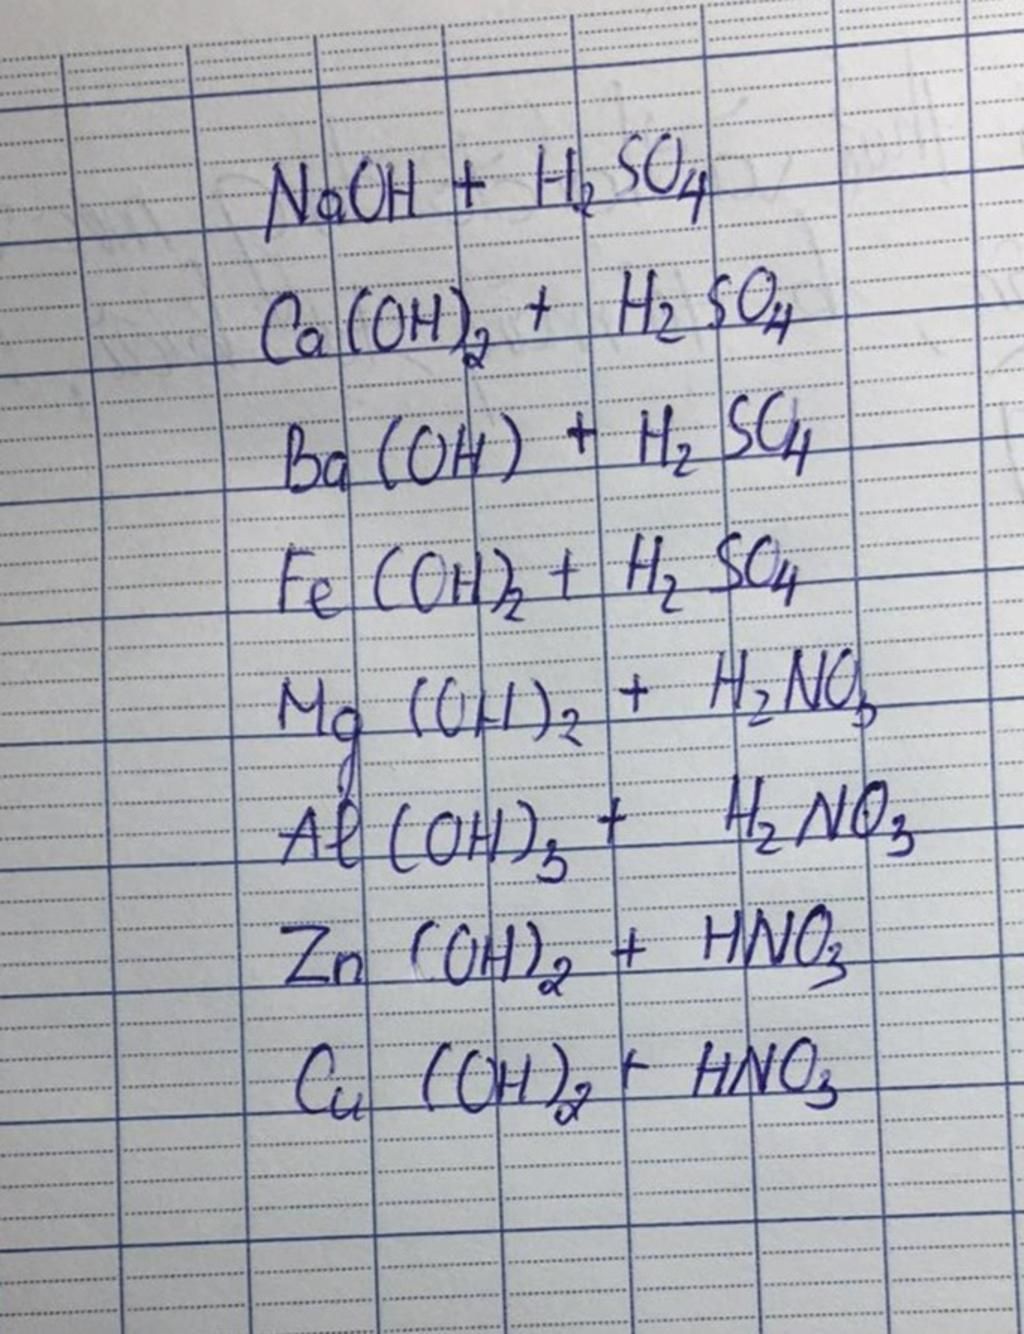 NaOH + H₂SO₄
Ca(OH)₂ + H₂SO₄
Ba(OH) + H₂SO₄
Fe(OH)₂ + H₂SO₄
Mg(OH)₂ + H₂NO₃
Al(OH)₃ + H₂NO₃
Zn(OH)₂ + HNO₃
Cu(OH)₂ + HNO₃